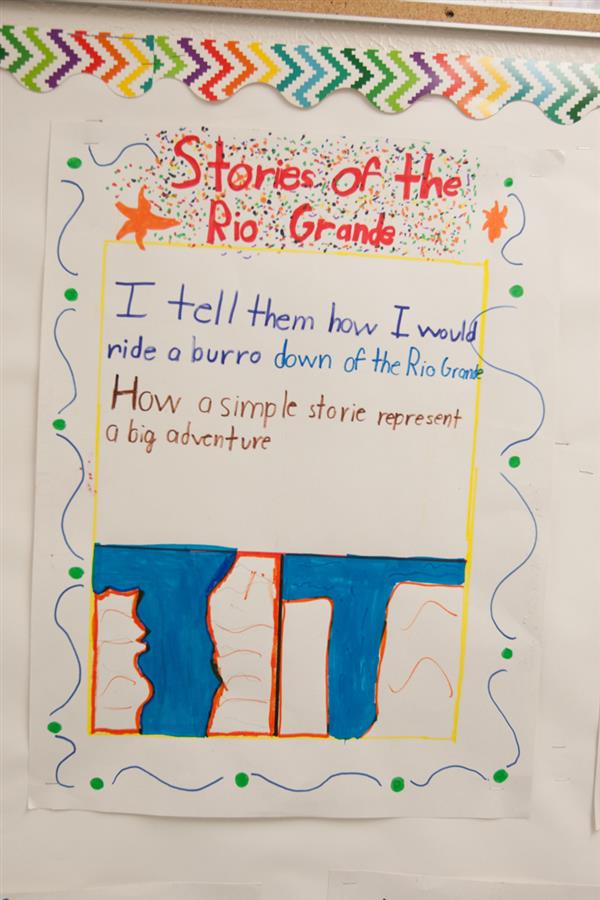 Stories of the
Rio Grande
I tell them how I would
ride a burro down of the Rio Grande
How a simple storie represent
a big adventure